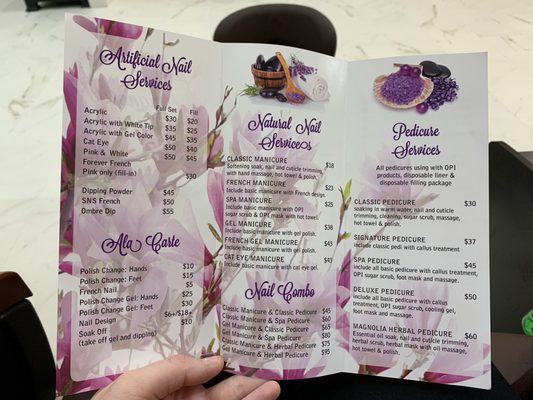 Artificial Nail
Services
Full Set Fill
Acrylic $30 $20
Acrylic with White Tip $35 $25
Acrylic with Gel Color $45 $35
Cat Eye
Pink & White $50
Forever French
Pink only (fill-in) $30
Dipping Powder $45
SNS French $50
Ombre Dip $55
Ala Carte
Polish Change: Hands $10
Polish Change: Feet $15
French Nail $5
Polish Change Gel: Hands $25
Polish Change Gel: Feet $30
Nail Design $6+/$18+
Soak Off $10
(take off gel and dipping)
Natural Nail
Services
CLASSIC MANICURE $18
Softening soak, nail and cuticle trimming
with hand massage, hot towel & polish,
FRENCH MANICURE $23
Include basic manicure with French design.
SPA MANICURE $25
Include basic manicure with OPI
sugar scrub & OPI mask with hot towel.
GEL MANICURE $38
Include basic manicure with gel polish.
FRENCH GEL MANICURE $43
Include basic manicure with gel polish.
CAT EYE MANICURE $43
Include basic manicure with cat eye gel.
Nail Combo
Classic Manicure & Classic Pedicure $45
Classic Manicure & Spa Pedicure $60
Gel Manicure & Classic Pedicure $65
Gel Manicure & Spa Pedicure $80
Classic Manicure & Herbal Pedicure $75
Gel Manicure & Herbal Pedicure $95
Pedicure
Services
All pedicures using with OPI
products, disposable liner &
disposable filling package
CLASSIC PEDICURE $30
soaking in warm water, nail and cuticle
trimming, cleaning, sugar scrub, massage,
hot towel & polish.
SIGNATURE PEDICURE $37
include classic pedi with callus treatment
SPA PEDICURE $45
include all basic pedicure with callus treatment,
OPI sugar scrub, foot mask and massage.
DELUXE PEDICURE $50
include all basic pedicure with callus
treatment, OPI sugar scrub, cooling gel,
foot mask and massage.
MAGNOLIA HERBAL PEDICURE $60
Essential oil soak, nail and cuticle trimming,
herbal scrub, herbal mask with oil massage,
hot towel & polish.